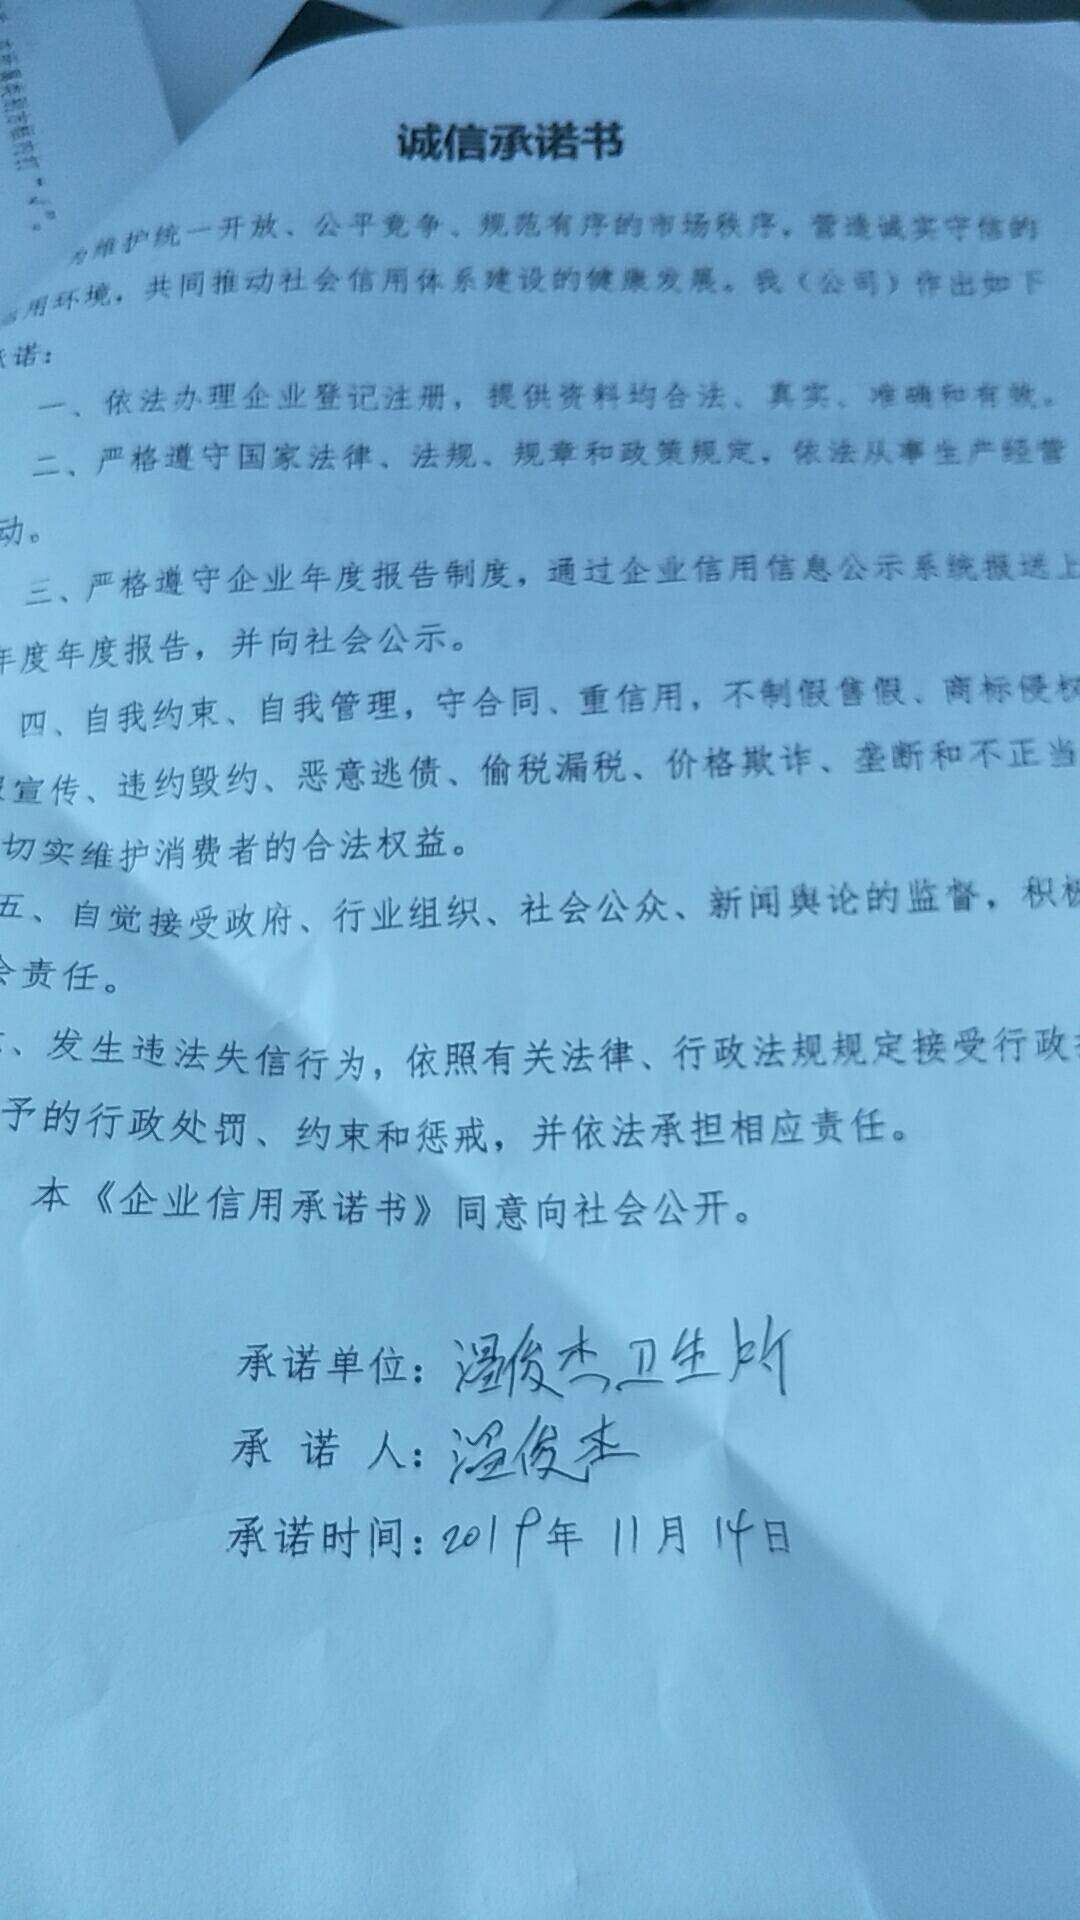 诚信承诺书
为维护统一开放、公平竞争、规范有序的市场秩序，营造诚实守信的
用环境，共同推动社会信用体系建设的健康发展。我（公司）作出如下
承诺：
一、依法办理企业登记注册，提供资料均合法、真实、准确和有效。
二、严格遵守国家法律、法规、规章和政策规定，依法从事生产经营
动。
三、严格遵守企业年度报告制度，通过企业信用信息公示系统报送上
年度年度报告，并向社会公示。
四、自我约束、自我管理，守合同、重信用，不制假售假、商标侵权
宣传、违约毁约、恶意逃债、偷税漏税、价格欺诈、垄断和不正当
切实维护消费者的合法权益。
五、自觉接受政府、行业组织、社会公众、新闻舆论的监督，积极
会责任。
、发生违法失信行为，依照有关法律、行政法规规定接受行政
予的行政处罚、约束和惩戒，并依法承担相应责任。
本《企业信用承诺书》同意向社会公开。
承诺单位：温俊杰卫生所
承 诺 人：温俊杰
承诺时间：2019年 11月 14日